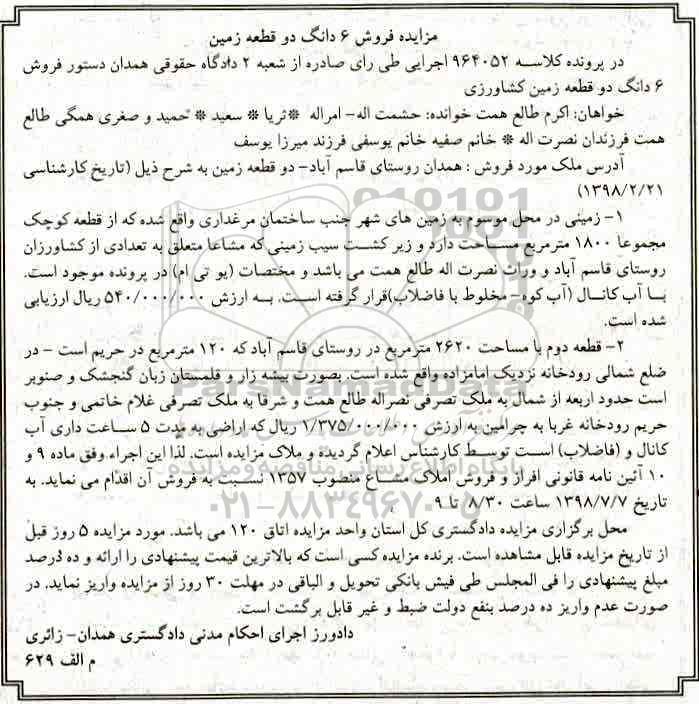 مزایده فروش ۶ دانگ دو قطعه زمین
در پرونده کلاسه ۹۶۴۰۵۲ اجرایی طی رای صادره از شعبه ۲ دادگاه حقوقی همدان دستور فروش
۶ دانگ دو قطعه زمین کشاورزی
خواهان: اکرم طالع همت خوانده: حشمت اله- امراله *ثریا * سعید * حمید و صغری همگی طالع
همت فرزندان نصرت اله * خانم صفیه خانم یوسفی فرزند میرزا یوسف
آدرس ملک مورد فروش : همدان روستای قاسم آباد- دو قطعه زمین به شرح ذیل (تاریخ کارشناسی
۱۳۹۸/۲/۲۱)
۱- زمینی در محل موسوم به زمین های شهر جنب ساختمان مرغداری واقع شده که از قطعه کوچک
مجموعا ۱۸۰۰ مترمربع مساحت دارد و زیر کشت سیب زمینی که مشاعا متعلق به تعدادی از کشاورزان
روستای قاسم آباد و وراث نصرت اله طالع همت می باشد و مختصات (یو تی ام) در پرونده موجود است.
با آب کانال (آب کوه- مخلوط با فاضلاب)قرار گرفته است. به ارزش ۵۴۰/۰۰۰/۰۰۰ ریال ارزیابی
شده است.
۲- قطعه دوم با مساحت ۲۶۲۰ مترمربع در روستای قاسم آباد که ۱۲۰ مترمربع در حریم است - در
ضلع شمالی رودخانه نزدیک امامزاده واقع شده است. بصورت بیشه زار و قلمستان زبان گنجشک و صنوبر
است حدود اربعه از شمال به ملک تصرفی نصراله طالع همت و شرقا به ملک تصرفی غلام خاتمی و جنوب
حریم رودخانه غربا به چرامین به ارزش ۱/۳۷۵/۰۰۰/۰۰۰ ریال که اراضی به مدت ۵ ساعت داری آب
کانال و (فاضلاب) است توسط کارشناس اعلام گردیده و ملاک مزایده است. لذا این اجراء وفق ماده ۹ و
۱۰ آئین نامه قانونی افراز و فروش املاک مشاع منصوب ۱۳۵۷ نسبت به فروش آن اقدام می نماید. به
تاریخ ۱۳۹۸/۷/۷ ساعت ۸/۳۰ تا ۹
محل برگزاری مزایده دادگستری کل استان واحد مزایده اتاق ۱۲۰ می باشد. مورد مزایده ۵ روز قبل
از تاریخ مزایده قابل مشاهده است. برنده مزایده کسی است که بالاترین قیمت پیشنهادی را ارائه و ده درصد
مبلغ پیشنهادی را فی المجلس طی فیش بانکی تحویل و الباقی در مهلت ۳۰ روز از مزایده واریز نماید. در
صورت عدم واریز ده درصد بنفع دولت ضبط و غیر قابل برگشت است.
دادورز اجرای احکام مدنی دادگستری همدان- زائری
م الف ۶۲۹
ParsNamadData
پایگاه اطلاع رسانی مناقصه و مزایده
۰۲۱-۸۸۳۴۹۶۷۰